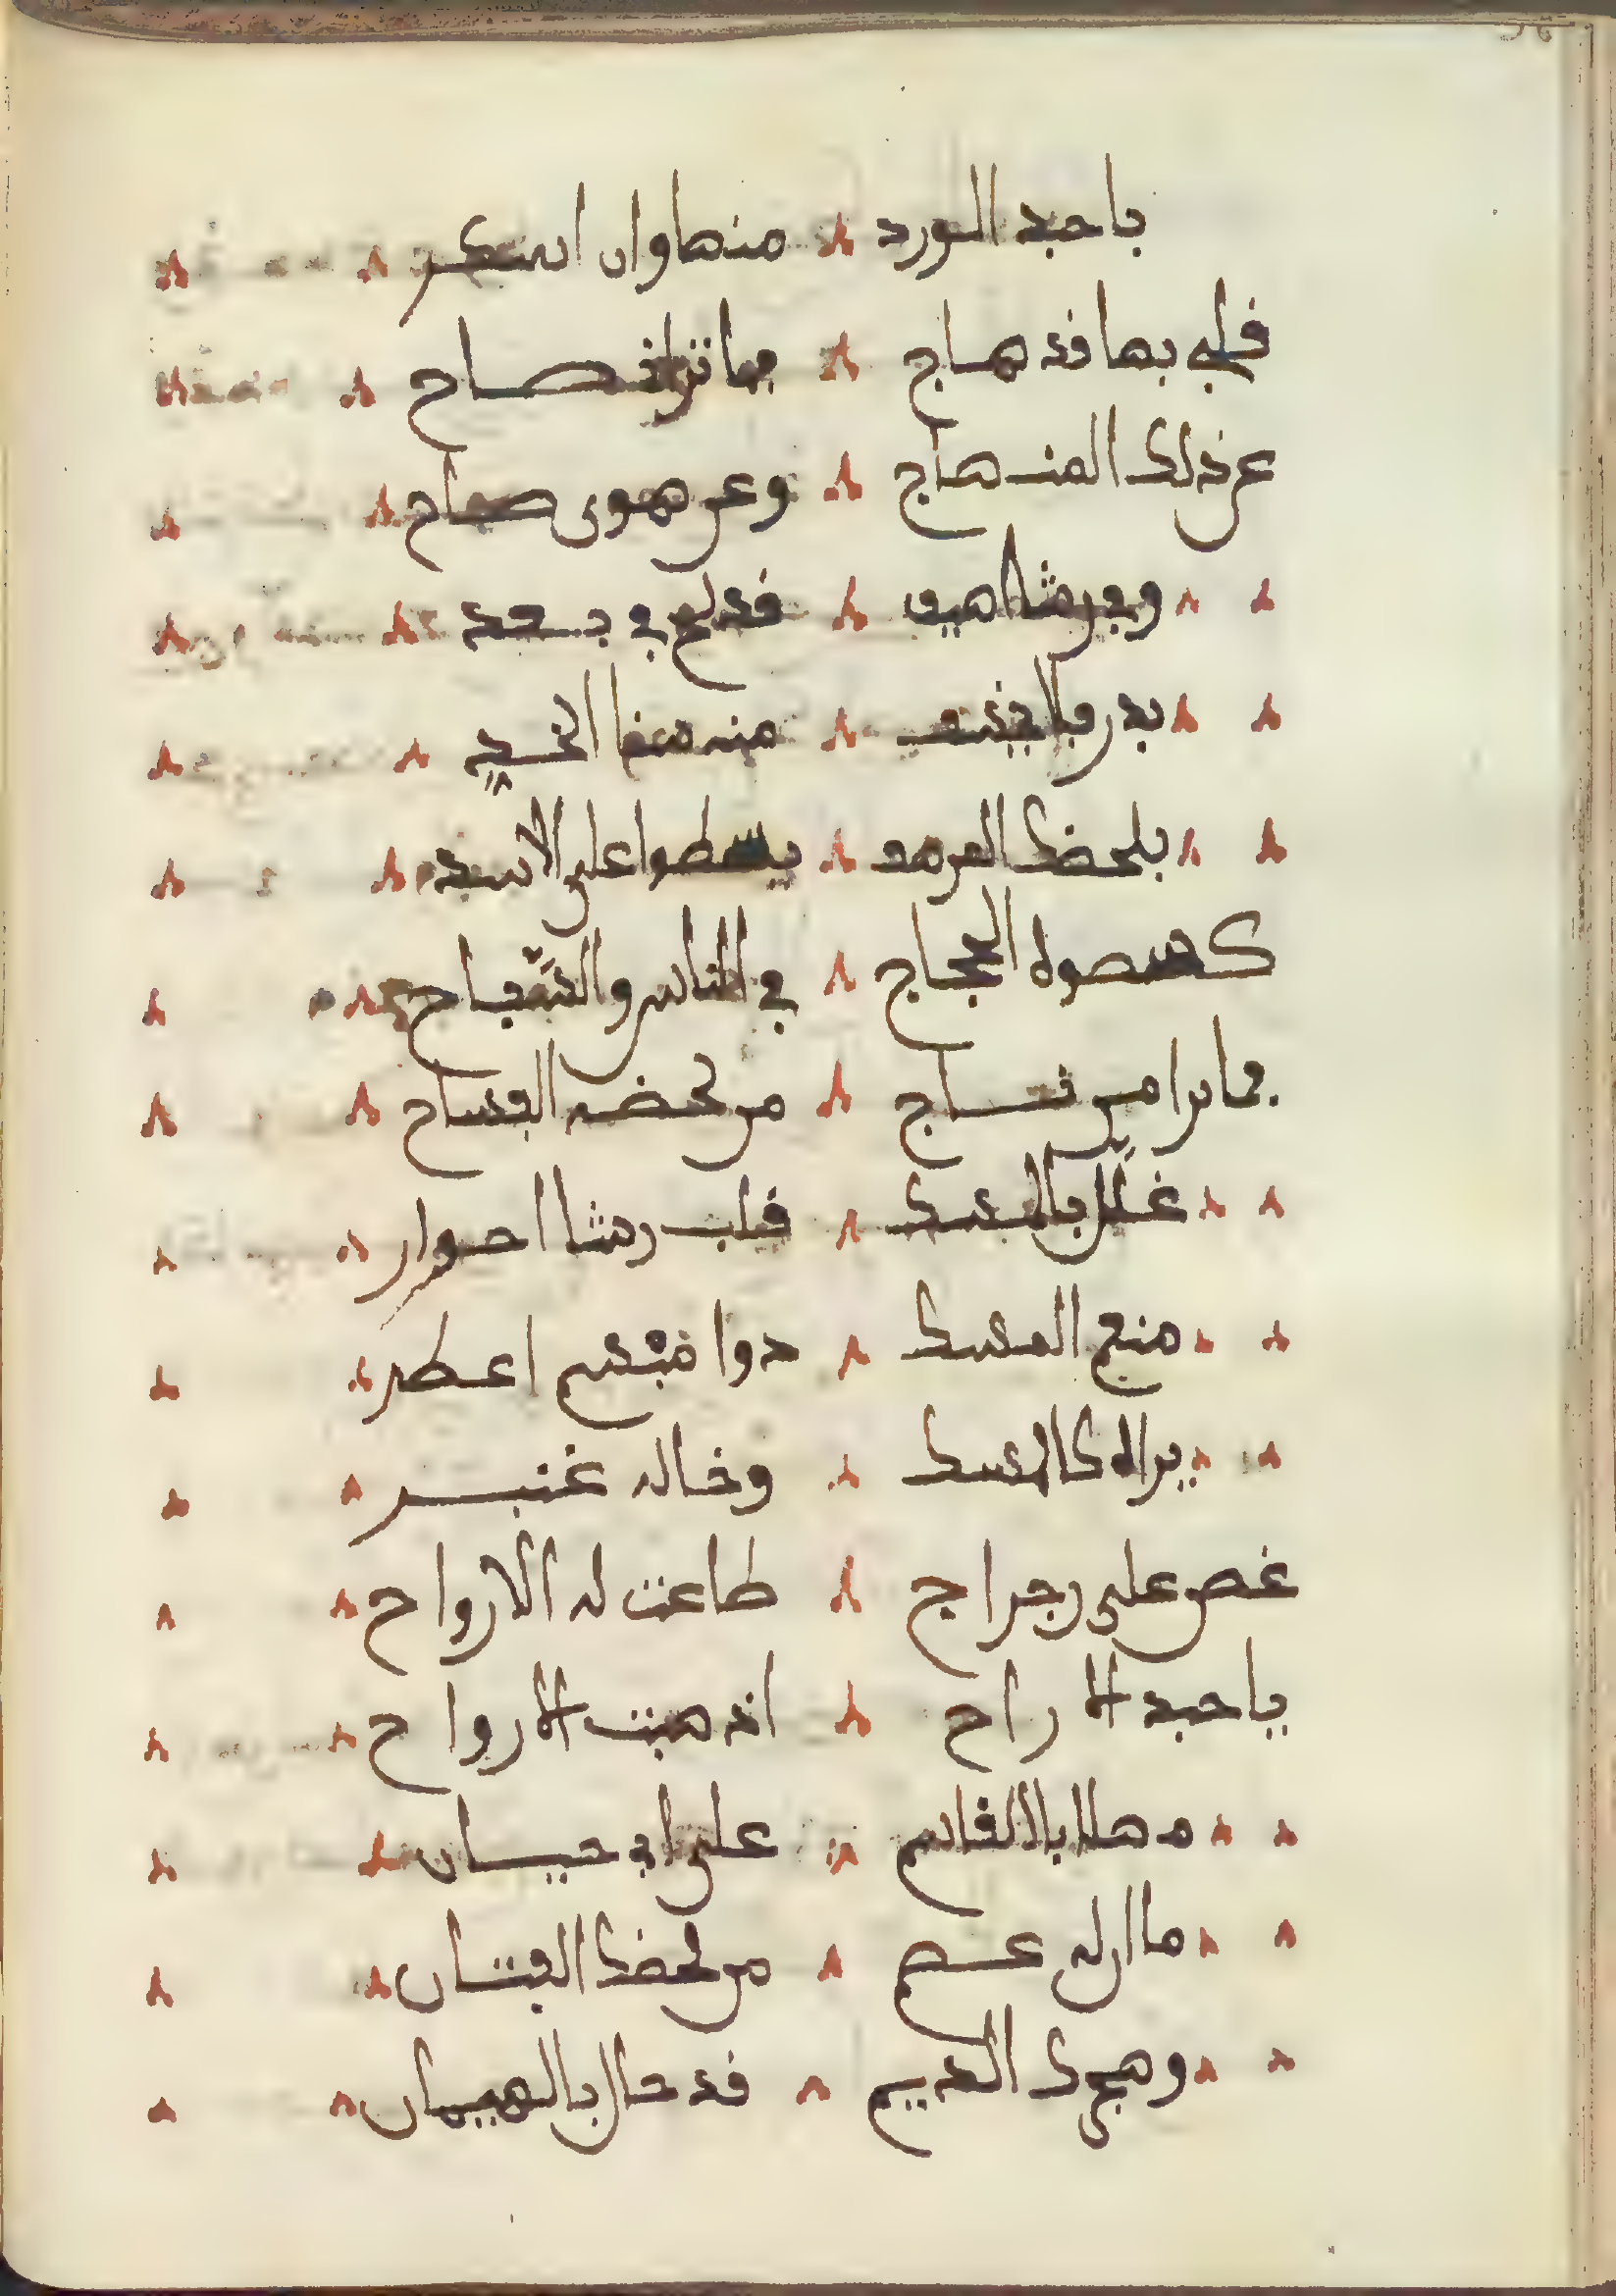 ياحبد الورد منها وان اسكر
قلبي بها قد هاج فما تراني صاح
عن ذلك المنهاج وعن هوى صاح
وبي رشا اهيف قد لج في بعده
بدر فلا يخسف منه سنا الخد
بلحظك المرهف يسطوا على الاسد
كسطوة الحجاج في الناس والسفاح
فما ترا من ناج من لحظه السفاح
علل بالمسك قلب رشا احوار
منعم المسك ذوا مبسم اعطر
رياه كالمسك وخاله عنبر
غصن على رجراج طاعت له الارواح
ياحبد الاراح اذ هبت الارواح
مهلا ابا القاسم على ابي حيان
ما ان له عاصم من لحظك الفتان
وهجرك الديم قد حال بالهيمان